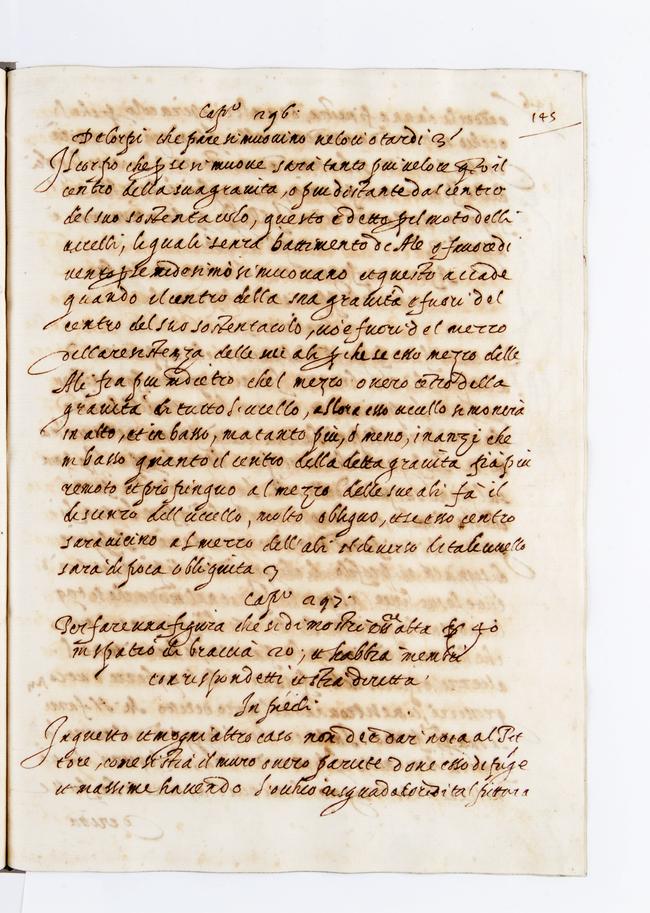 145
Cap.º 296.
De Corpi che per se si muovino veloci o tardi
Il corpo che per se si muove sarà tanto piu veloce qto il
centro della sua gravita, e piu distante dal centro
del suo sostentacolo, questo è detto pel moto delli
uccelli, le quali senza battimento de Ale
vento per se medesimo si muovano et questo accade
quando il centro della sua gravità e fuori del
centro del suo sostentacolo, cioe fuori del mezzo
della resistenza delle sue ali per che se esso mezzo delle
Ale fia piu indietro chel mezzo overo cetro della
gravità di tutto l'ucello, allora esso ucello si moverà
in alto, et in basso, ma tanto più, o meno, inanzi che
in basso quanto il centro della detta gravita fia più
remoto et propinquo al mezzo delle sue ali fà il
descenso dell'uccello, molto obliquo, et se esso centro
sara vicino al mezzo dell'ali el de verso di tale ucello
sarà di poca obliquita
Cap.º 297.
Per fare una figura che si dimostri alta br 40
in spatio di braccia 20; et habbia membri
corrispondetti et stia diritta
In piedi
In questo et in ogni altro caso non de dar noia al Pit
tore, come si stia il muro overo parete dove esso dipige
et massime havendo l'ochio